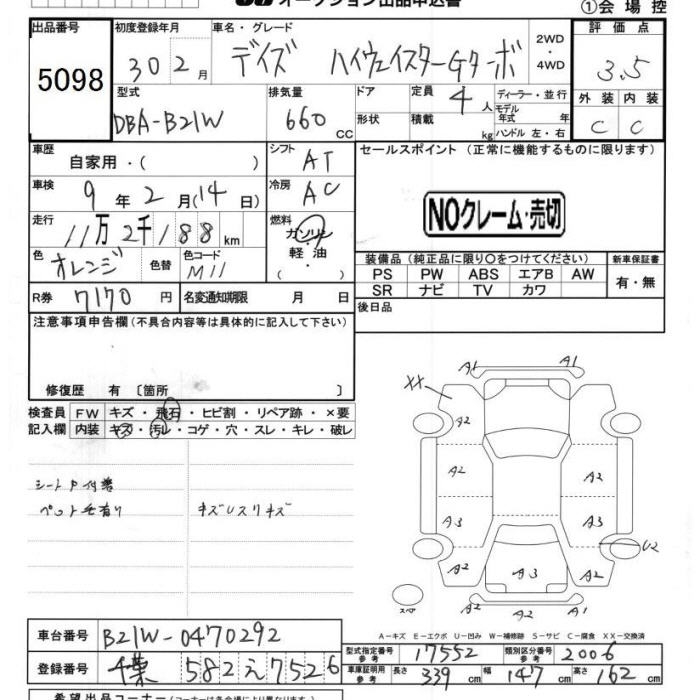 オークション出品申込書
①会場控
出品番号 初度登録年月 車名・グレード 評価点
5098 30 2月 デイズ ハイウェイスターGターボ 2WD・4WD 3.5
型式 排気量 ドア 定員 4人 ディーラー・並行 外装 内装
DBA-B21W 660cc 形状 積載 kg モデル年式 年 ハンドル 左・右 C C
車歴 自家用・( ) シフト AT セールスポイント (正常に機能するものに限ります)
車検 9年2月(14日) 冷房 AC
走行 11万2千188km 燃料 ガソリン・軽油・
NOクレーム・売切
色 オレンジ 色替 色コード M11
装備品 (純正品に限り○をつけてください) 新車保証書
PS PW ABS エアB AW 有・無
SR ナビ TV カワ
R券 7170円 名変通知期限 月 日
後日品
注意事項申告欄 (不具合内容等は具体的に記入して下さい)
修復歴 有 〔箇所 〕
検査員 FW キズ・飛石・ヒビ割・リペア跡・×要
記入欄 内装 キズ・汚レ・コゲ・穴・スレ・キレ・破レ
ペット毛有り キズUスリキズ
A1 A1
XX
A2 A2
A3 A3
U2
A2 A3 A2
A2 A1
スペア
A-キズ E-エクボ U-凹み W-補修跡 S-サビ C-腐食 XX-交換済
車台番号 B21W-0470292
型式指定番号 参考 17552 類別区分番号 参考 2006
登録番号 千葉 582 え 7526
車庫証明用 参考 長さ 339cm 幅 147cm 高さ 162cm
希望出品コーナー